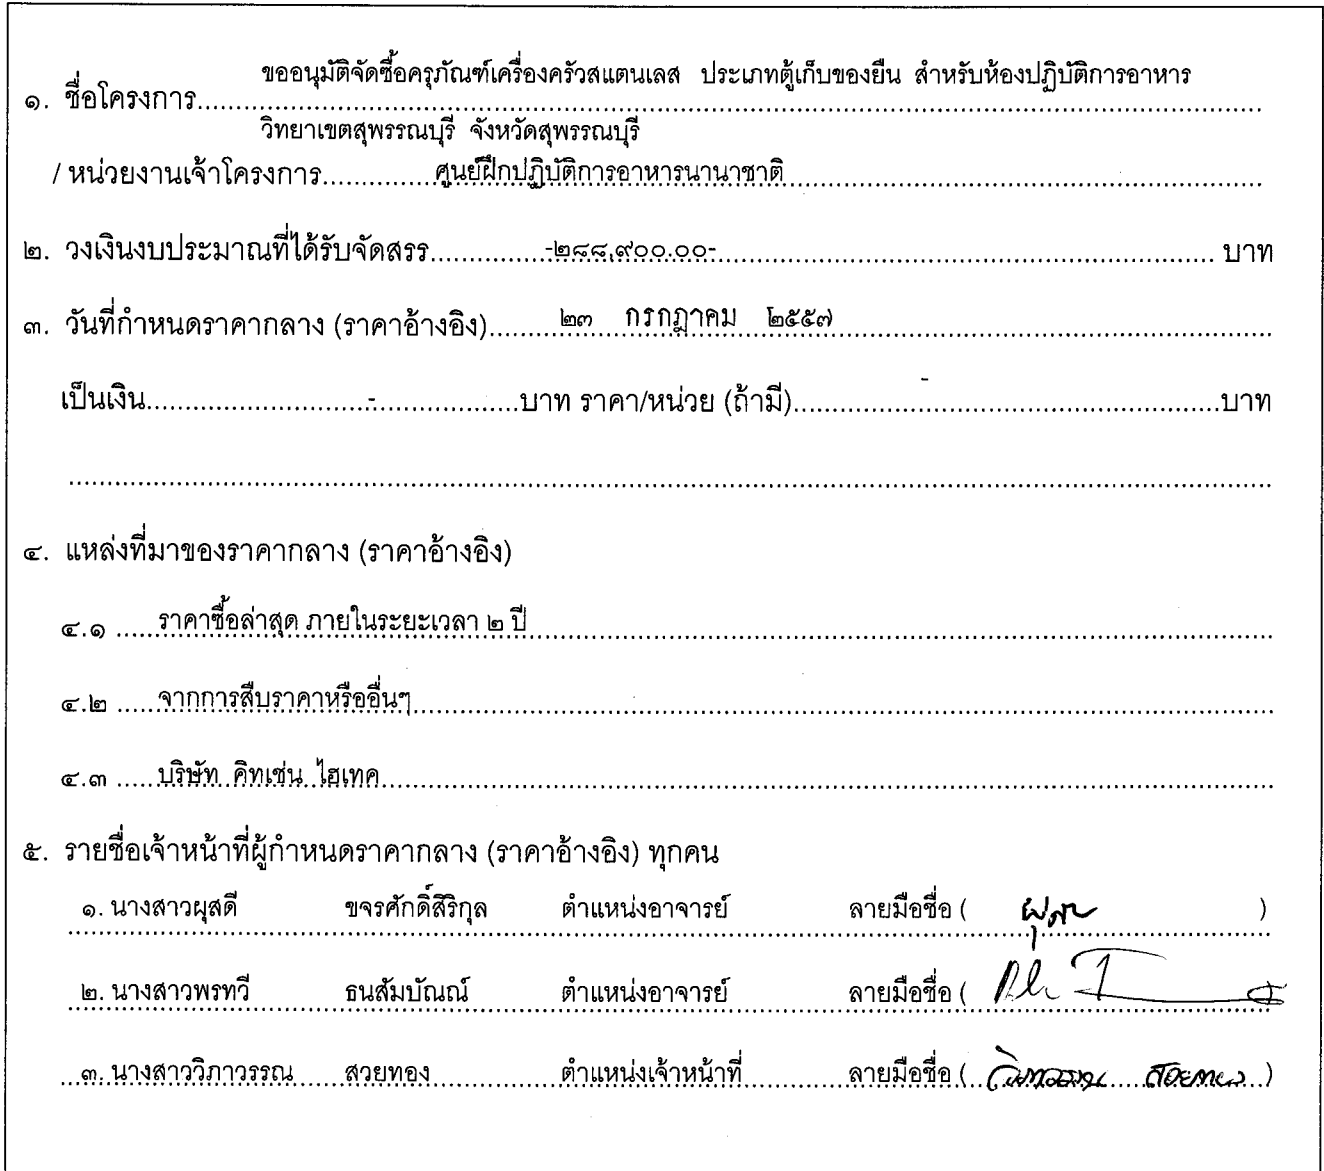 ขออนุมัติจัดซื้อครุภัณฑ์เครื่องครัวสแตนเลส ประเภทตู้เก็บของยืน สำหรับห้องปฏิบัติการอาหาร
๑. ชื่อโครงการ
วิทยาเขตสุพรรณบุรี จังหวัดสุพรรณบุรี
/ หน่วยงานเจ้าโครงการ ศูนย์ฝึกปฏิบัติการอาหารนานาชาติ
๒. วงเงินงบประมาณที่ได้รับจัดสรร -๒๘๘,๙๐๐.๐๐- บาท
๓. วันที่กำหนดราคากลาง (ราคาอ้างอิง) ๒๓ กรกฎาคม ๒๕๕๗
เป็นเงิน - บาท ราคา/หน่วย (ถ้ามี) - บาท
๔. แหล่งที่มาของราคากลาง (ราคาอ้างอิง)
๔.๑ ราคาซื้อล่าสุด ภายในระยะเวลา ๒ ปี
๔.๒ จากการสืบราคาหรืออื่นๆ
๔.๓ บริษัท คิทเช่น ไฮเทค
๕. รายชื่อเจ้าหน้าที่ผู้กำหนดราคากลาง (ราคาอ้างอิง) ทุกคน
๑. นางสาวผุสดี ขจรศักดิ์สิริกุล ตำแหน่งอาจารย์ ลายมือชื่อ ( )
๒. นางสาวพรทวี ธนสัมบัณณ์ ตำแหน่งอาจารย์ ลายมือชื่อ (
๓. นางสาววิภาวรรณ สวยทอง ตำแหน่งเจ้าหน้าที่ ลายมือชื่อ ( วิภาวรรณ สวยทอง )